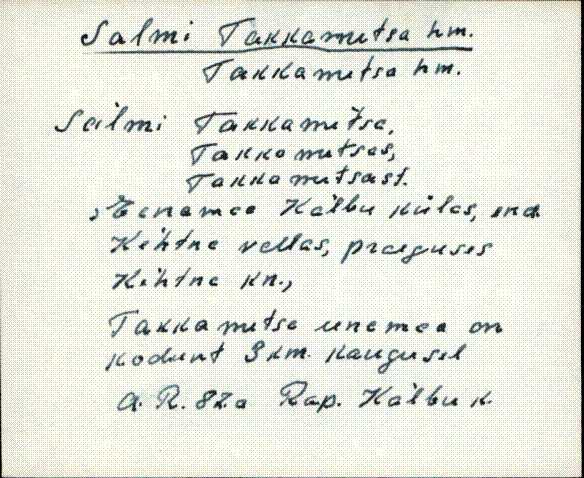 Salmi Takkametsa hm.
Takkametsa hm.
Salmi Takkametsa,
Takkametsas,
Takkametsast.
Heinamaa Kälbu külas, end.
Kehtna vallas, praeguses
Kehtna kn.,
Takkametsa einamaa on
kodunt 3 km. kaugusel
A. R. 82a Rap. Kälbu k.